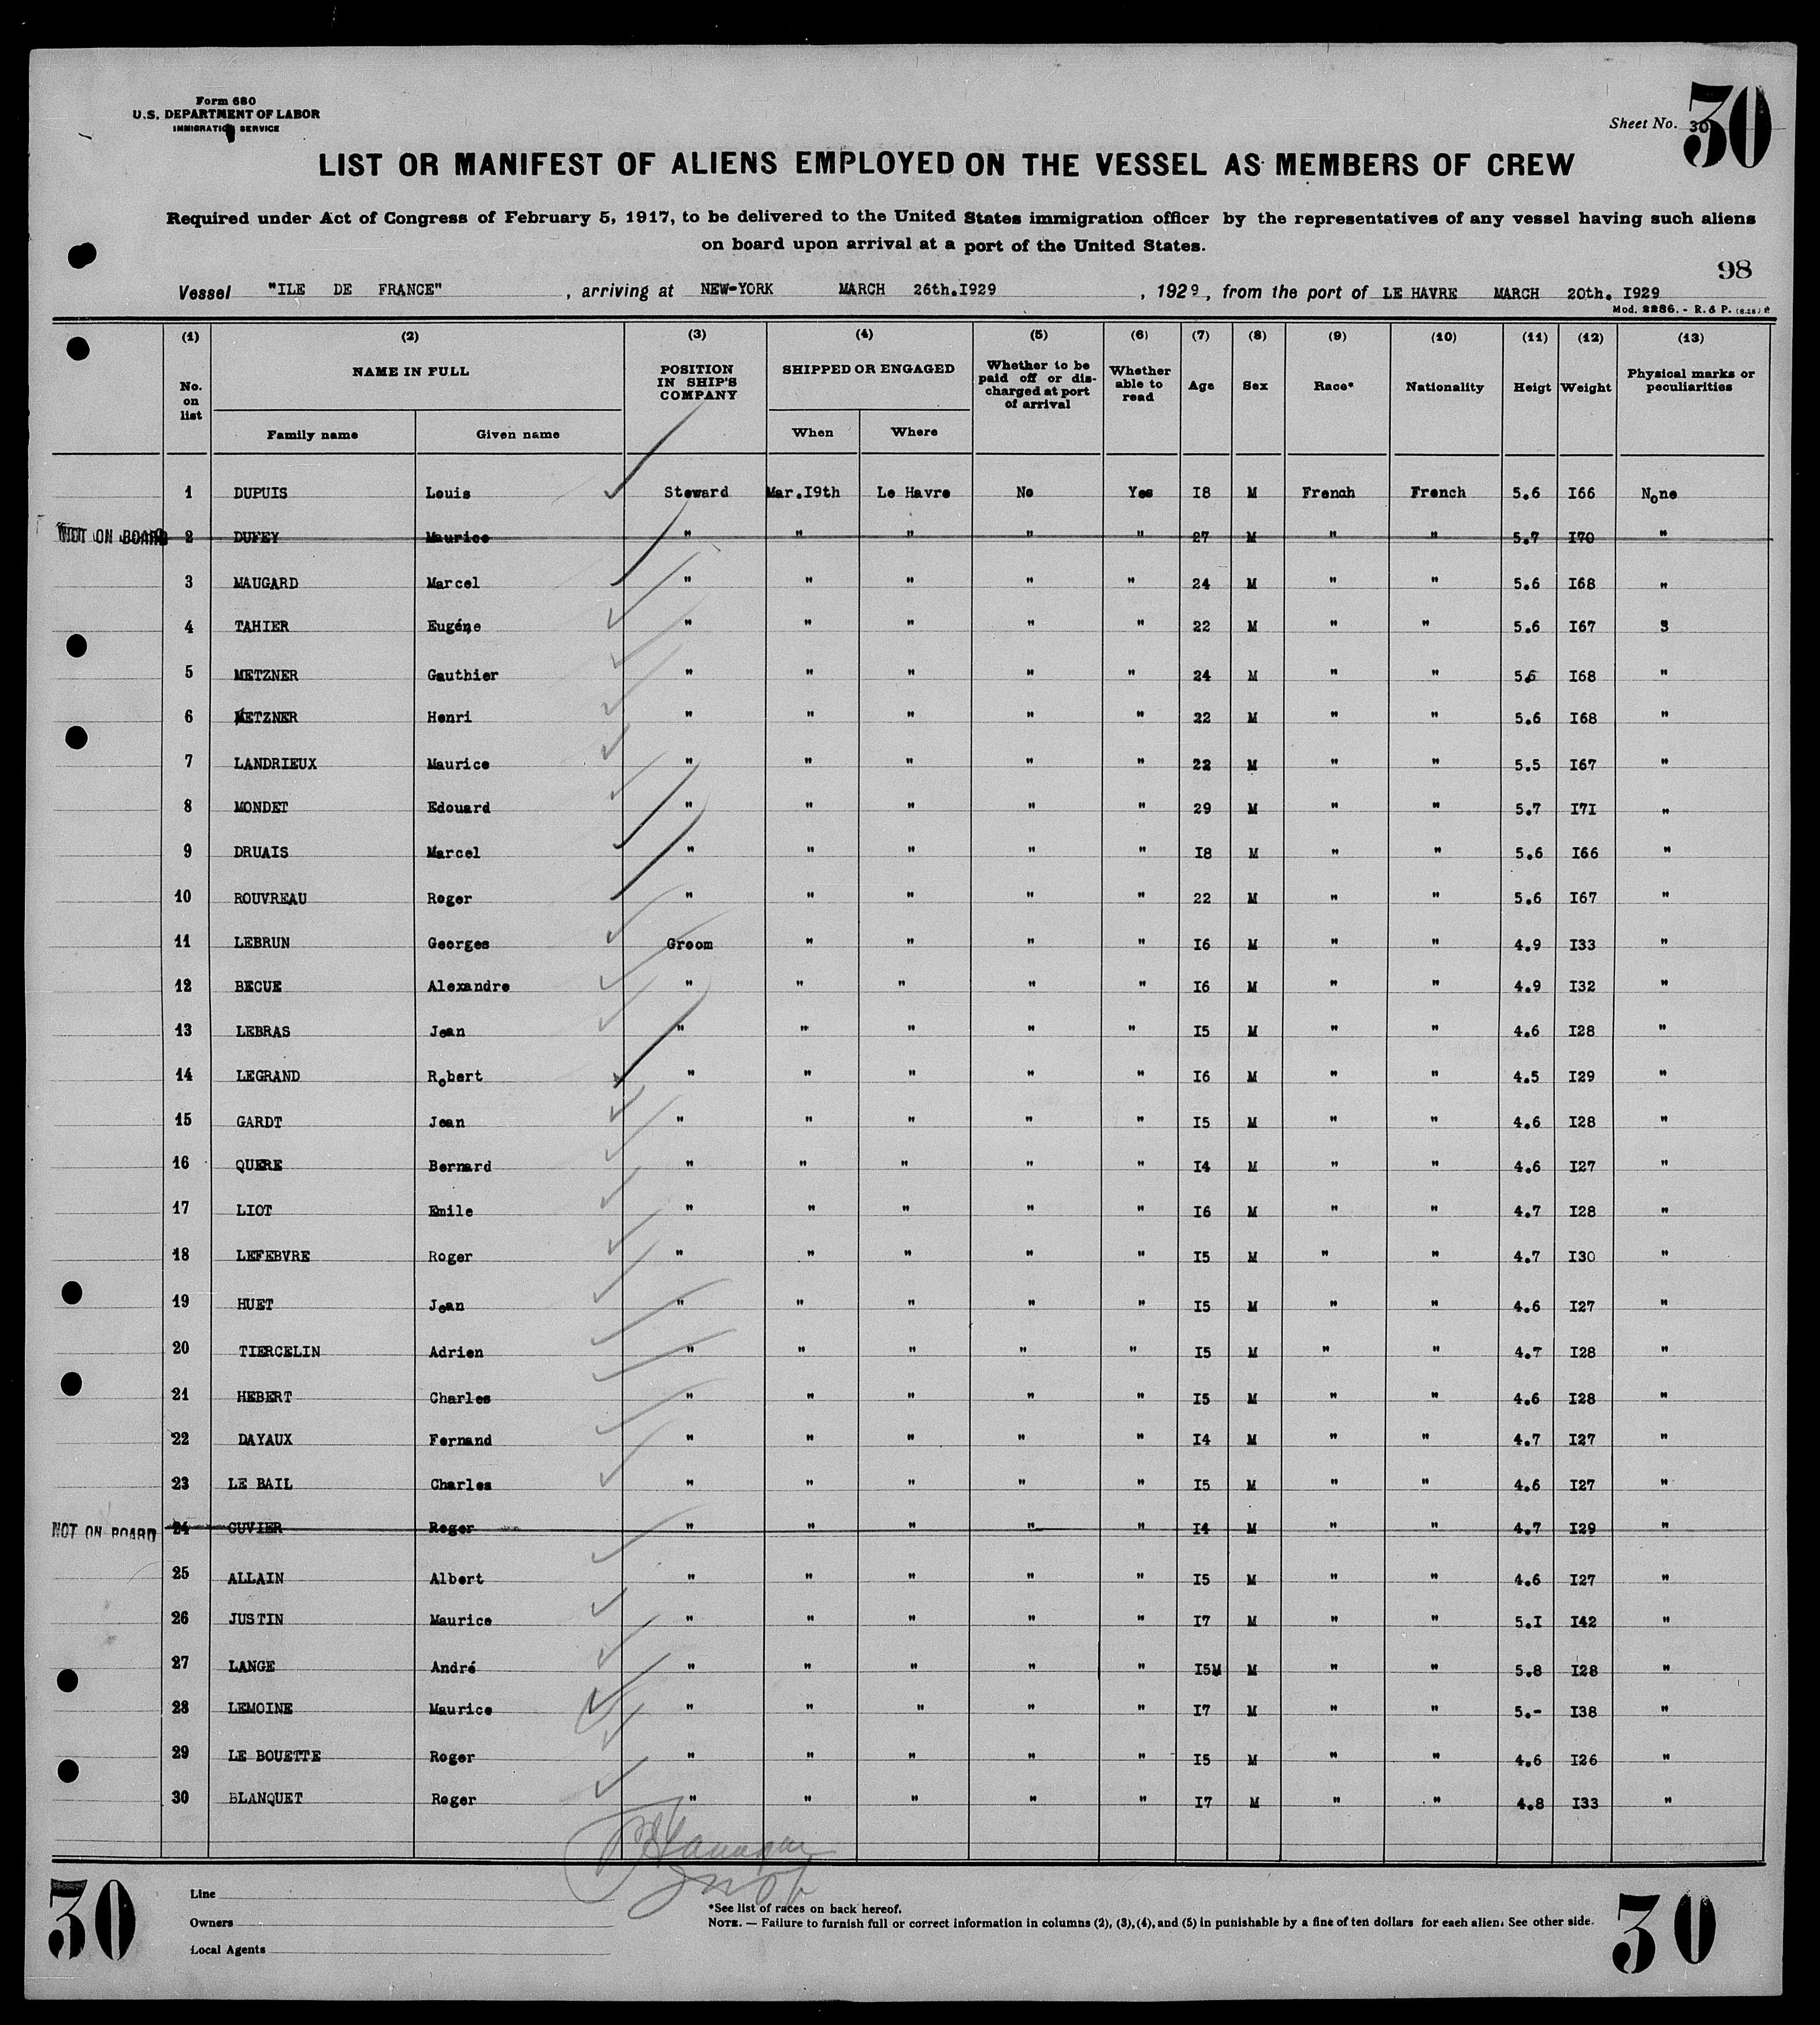 Form 680
U.S. DEPARTMENT OF LABOR
IMMIGRATION SERVICE
Sheet No. 30
30
LIST OR MANIFEST OF ALIENS EMPLOYED ON THE VESSEL AS MEMBERS OF CREW
Required under Act of Congress of February 5, 1917, to be delivered to the United States immigration officer by the representatives of any vessel having such aliens
on board upon arrival at a port of the United States.
98
Vessel "ILE DE FRANCE" , arriving at NEW-YORK MARCH 26th.I929 , 1929, from the port of LE HAVRE MARCH 20th. I929
Mod. 2286. - R. & P. (8.28) P.
(1) (2) (3) (4) (5) (6) (7) (8) (9) (10) (11) (12) (13)
No. on list NAME IN FULL POSITION IN SHIP'S COMPANY SHIPPED OR ENGAGED Whether to be paid off or dis-charged at port of arrival Whether able to read Age Sex Race* Nationality Heigt Weight Physical marks or peculiarities
Family name Given name When Where
1 DUPUIS Louis Steward Mar.I9th Le Havre No Yes I8 M French French 5.6 I66 None
NOT ON BOARD 2 DUFEY Maurice " " " " " 27 M " " 5.7 I70 "
3 MAUGARD Marcel " " " " " 24 M " " 5.6 I68 "
4 TAHIER Eugéne " " " " " 22 M " " 5.6 I67 3
5 METZNER Gauthier " " " " " 24 M " " 5.6 I68 "
6 METZNER Henri " " " " " 22 M " " 5.6 I68 "
7 LANDRIEUX Maurice " " " " " 22 M " " 5.5 I67 "
8 MONDET Edouard " " " " " 29 M " " 5.7 I7I "
9 DRUAIS Marcel " " " " " I8 M " " 5.6 I66 "
10 ROUVREAU Roger " " " " " 22 M " " 5.6 I67 "
11 LEBRUN Georges Groom " " " " I6 M " " 4.9 I33 "
12 BECUE Alexandre " " " " " I6 M " " 4.9 I32 "
13 LEBRAS Jean " " " " " I5 M " " 4.6 I28 "
14 LEGRAND Robert " " " " " I6 M " " 4.5 I29 "
15 GARDT Jean " " " " " I5 M " " 4.6 I28 "
16 QUERE Bernard " " " " " I4 M " " 4.6 I27 "
17 LIOT Emile " " " " " I6 M " " 4.7 I28 "
18 LEFEBVRE Roger " " " " " I5 M " " 4.7 I30 "
19 HUET Jean " " " " " I5 M " " 4.6 I27 "
20 TIERCELIN Adrien " " " " " I5 M " " 4.7 I28 "
21 HEBERT Charles " " " " " I5 M " " 4.6 I28 "
22 DAYAUX Fernand " " " " " I4 M " " 4.7 I27 "
23 LE BAIL Charles " " " " " I5 M " " 4.6 I27 "
NOT ON BOARD 24 CUVIER Roger " " " " " I4 M " " 4.7 I29 "
25 ALLAIN Albert " " " " " I5 M " " 4.6 I27 "
26 JUSTIN Maurice " " " " " I7 M " " 5.I I42 "
27 LANGE André " " " " " I5M M " " 5.8 I28 "
28 LEMOINE Maurice " " " " " I7 M " " 5.- I38 "
29 LE BOUETTE Roger " " " " " I5 M " " 4.6 I26 "
30 BLANQUET Roger " " " " " I7 M " " 4.8 I33 "
30
Line
Owners
Local Agents
*See list of races on back hereof.
NOTE. — Failure to furnish full or correct information in columns (2), (3), (4), and (5) in punishable by a fine of ten dollars for each alien. See other side.
30